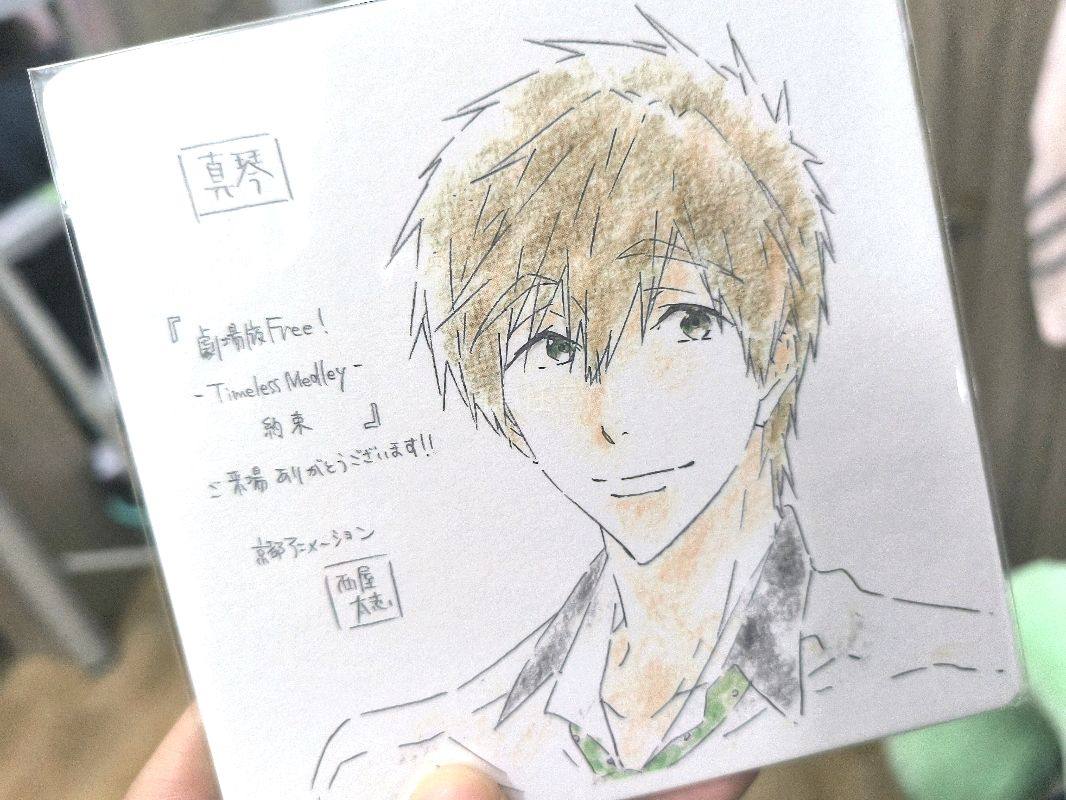 真琴
『劇場版Free!
-Timeless Medley-
約束 』
ご来場ありがとうございます!!
京都アニメーション
西屋
太志